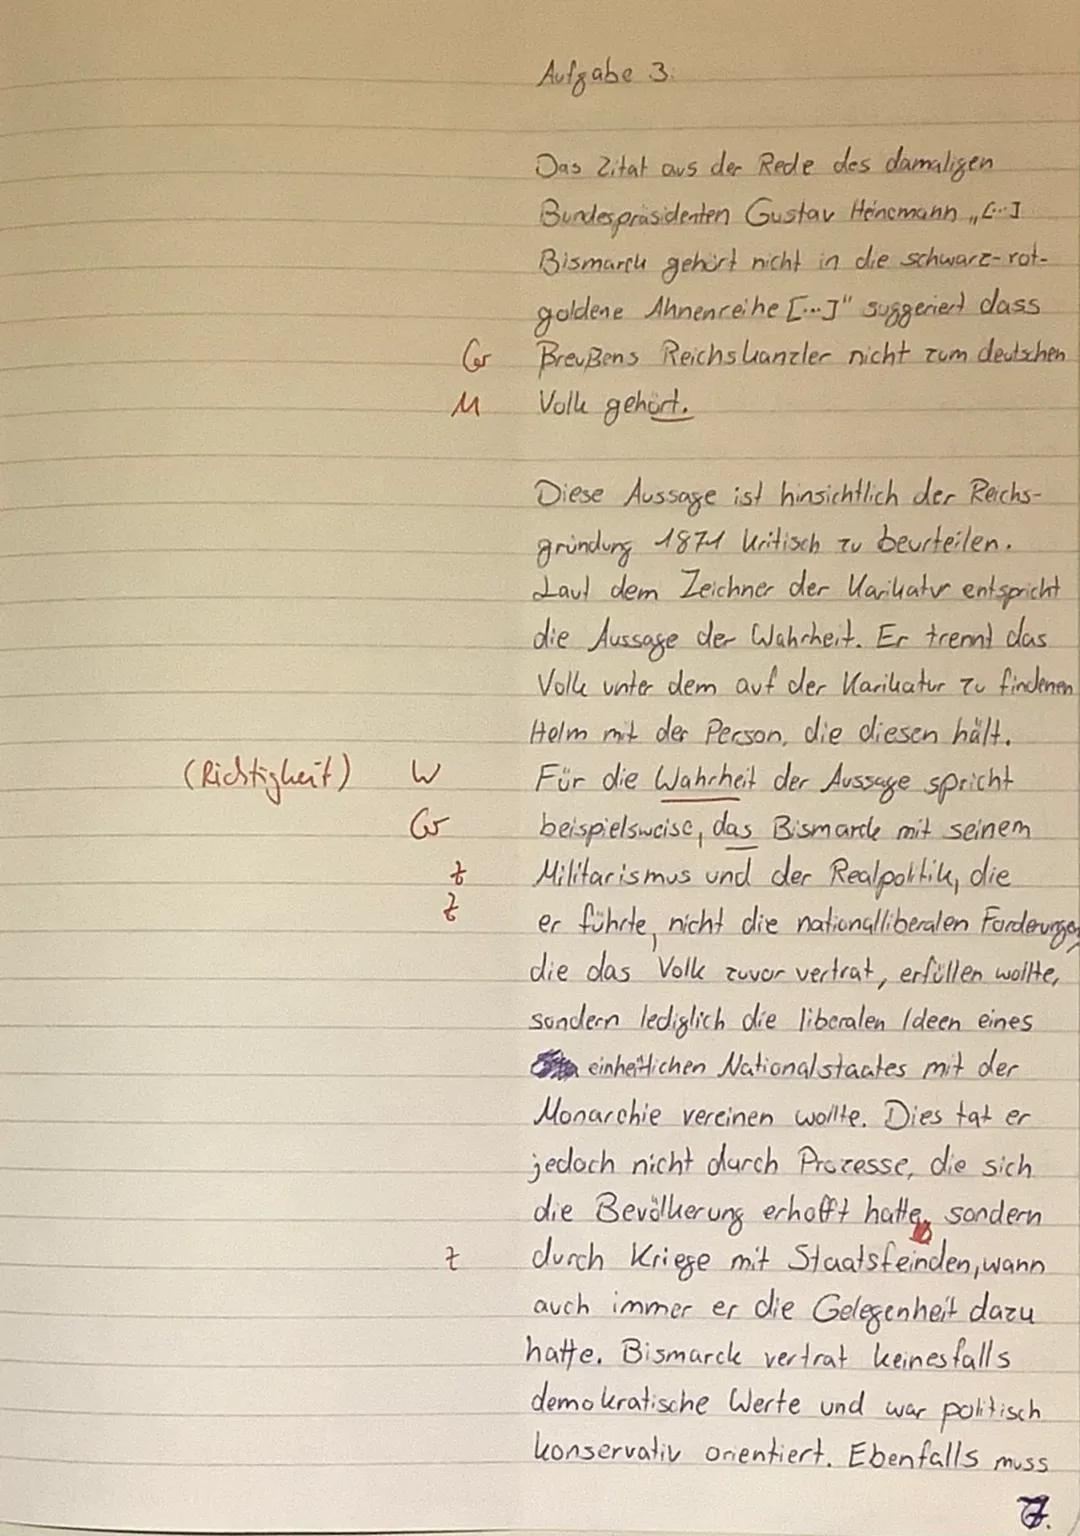 Aufgabe 3:
Das Zitat aus der Rede des damaligen
Bundespräsidenten Gustav Heinemann „[...]
Bismarck gehört nicht in die schwarz-rot-
goldene Ahnenreihe [...]" suggeriert dass
Gr Preußens Reichskanzler nicht zum deutschen
M Volk gehört.
Diese Aussage ist hinsichtlich der Reichs-
gründung 1871 kritisch zu beurteilen.
Laut dem Zeichner der Karikatur entspricht
die Aussage der Wahrheit. Er trennt das
Volk unter dem auf der Karikatur zu findenen
Helm mit der Person, die diesen hält.
(Richtigkeit) W Für die Wahrheit der Aussage spricht
Gr beispielsweise, das Bismarck mit seinem
z Militarismus und der Realpolitik, die
z er führte, nicht die nationalliberalen Forderungen,
die das Volk zuvor vertrat, erfüllen wollte,
sondern lediglich die liberalen Ideen eines
einheitlichen Nationalstaates mit der
Monarchie vereinen wollte. Dies tat er
jedoch nicht durch Prozesse, die sich
die Bevölkerung erhofft hatte, sondern
z durch Kriege mit Staatsfeinden, wann
auch immer er die Gelegenheit dazu
hatte. Bismarck vertrat keinesfalls
demokratische Werte und war politisch
konservativ orientiert. Ebenfalls muss
7.